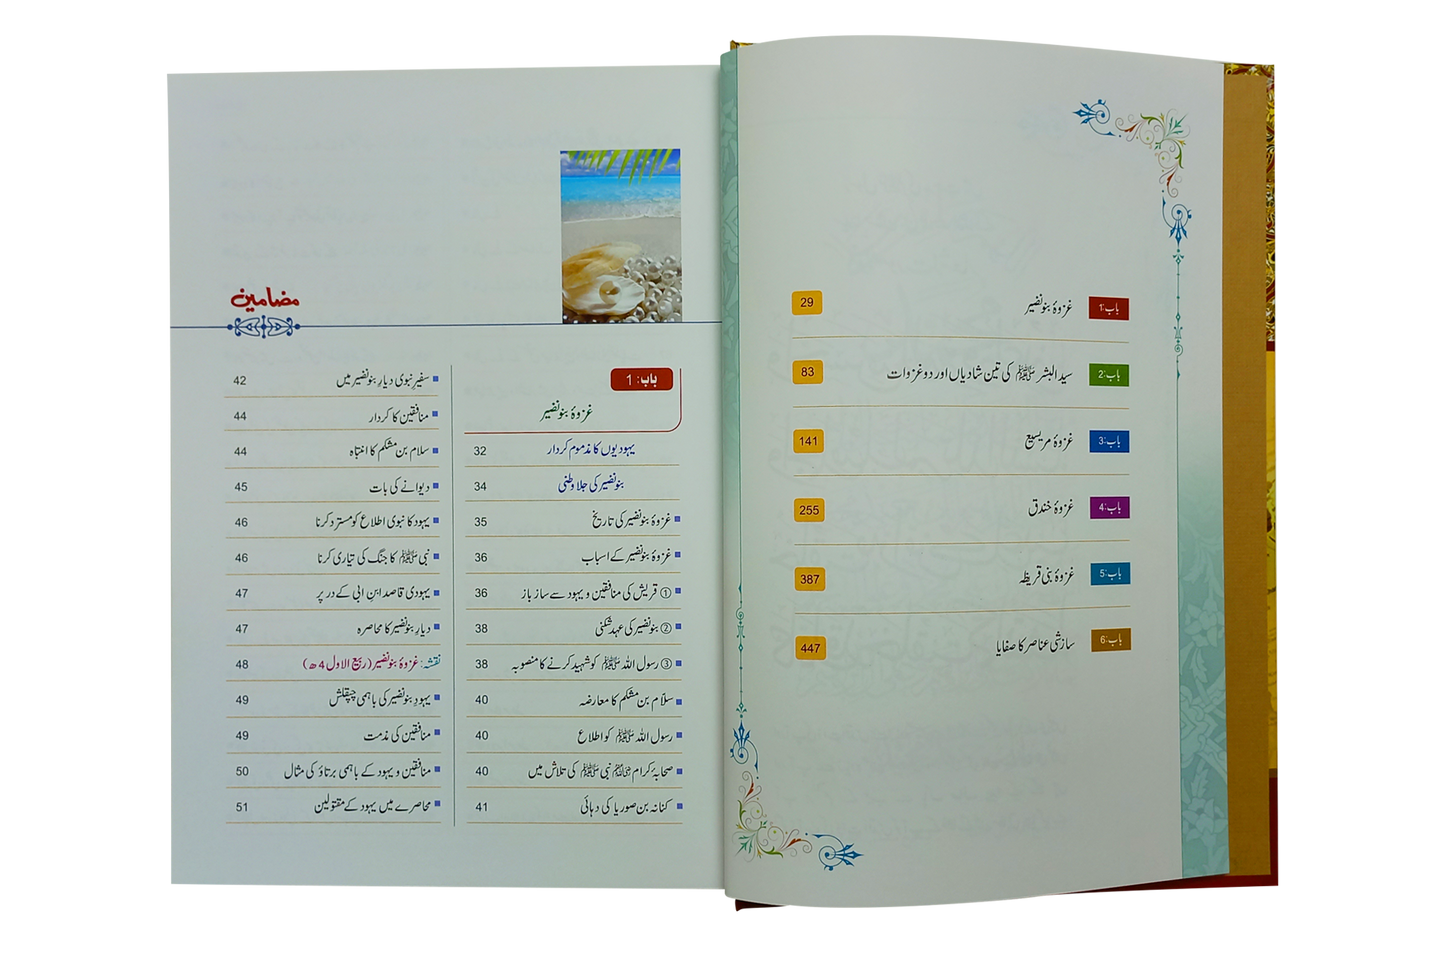 باب:1 غزوۂ بنونضیر 29
باب:2 سید البشر ﷺ کی تین شادیاں اور دو غزوات 83
باب:3 غزوۂ مریسیع 141
باب:4 غزوۂ خندق 255
باب:5 غزوۂ بنی قریظہ 387
باب:6 سازشی عناصر کا صفایا 447
مضامین
باب: 1
غزوۂ بنونضیر
یہودیوں کا مذموم کردار 32
بنونضیر کی جلا وطنی 34
غزوۂ بنونضیر کی تاریخ 35
غزوۂ بنونضیر کے اسباب 36
① قریش کی منافقین و یہود سے ساز باز 36
② بنونضیر کی عہد شکنی 38
③ رسول اللہ ﷺ کو شہید کرنے کا منصوبہ 38
سلّام بن مشکم کا معارضہ 40
رسول اللہ ﷺ کو اطلاع 40
صحابۂ کرام نبی ﷺ کی تلاش میں 40
کنانہ بن صوریا کی دہائی 41
سفیرِ نبوی دیارِ بنونضیر میں 42
منافقین کا کردار 44
سلام بن مشکم کا انتباہ 44
دیوانے کی بات 45
یہود کا نبوی اطلاع کو مسترد کرنا 46
نبی ﷺ کا جنگ کی تیاری کرنا 46
یہودی قاصد ابن ابی کے در پر 47
دیارِ بنونضیر کا محاصرہ 47
نقشہ: غزوۂ بنونضیر (ربیع الاول 4ھ) 48
یہودِ بنونضیر کی باہمی چپقلش 49
منافقین کی مذمت 49
منافقین و یہود کے باہمی برتاؤ کی مثال 50
محاصرے میں یہود کے مقتولین 51